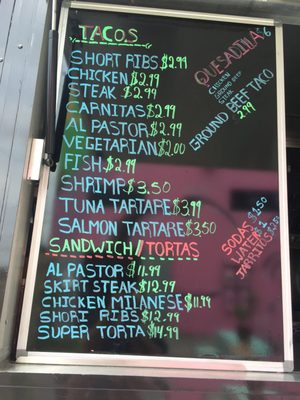 TACOS
SHORT RIBS $2.99
CHICKEN $2.99
STEAK $2.99
CARNITAS $2.99
AL PASTOR $2.99
VEGETARIAN $2.00
FISH $2.99
SHRIMP $3.50
TUNA TARTARE $3.99
SALMON TARTARE $3.50
SANDWICH/TORTAS
AL PASTOR $11.99
SKIRT STEAK $12.99
CHICKEN MILANESE $11.99
SHORT RIBS $12.99
SUPER TORTA $14.99
QUESADILLA 6
CHICKEN
GROUND BEEF
STEAK
GROUND BEEF TACO
2.99
SODAS $1.50
WATER
JARRITOS